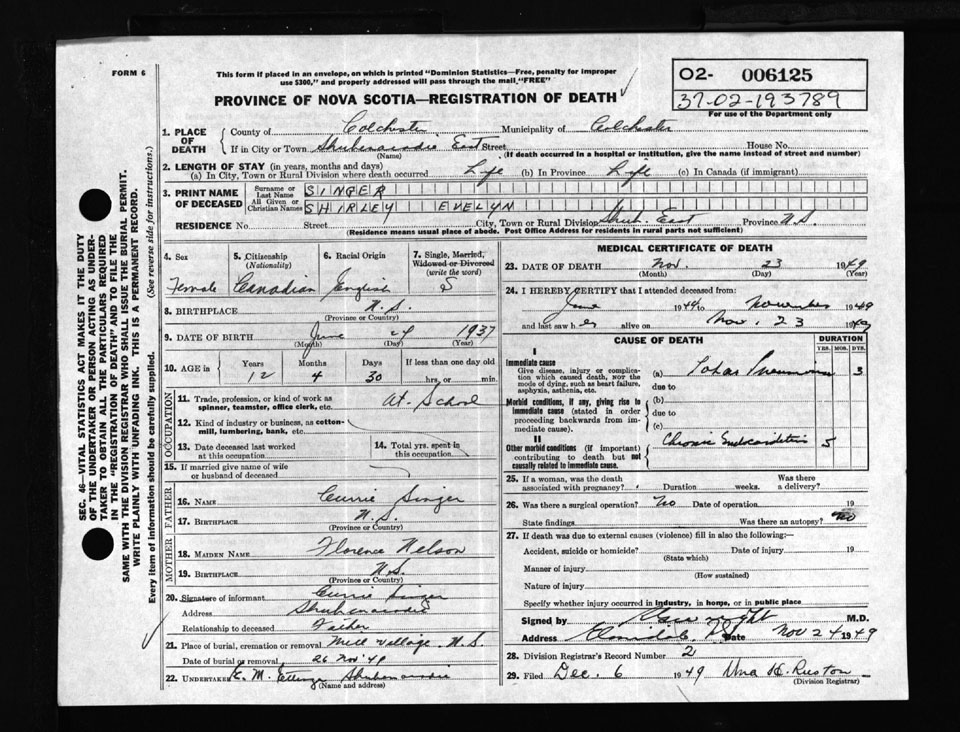 FORM 6
This form if placed in an envelope, on which is printed "Dominion Statistics—Free, penalty for improper
use $300," and properly addressed will pass through the mail, "FREE"
PROVINCE OF NOVA SCOTIA—REGISTRATION OF DEATH
02- 006125
37-02-193789
For use of the Department only
SEC. 46—VITAL STATISTICS ACT MAKES IT THE DUTY
OF THE UNDERTAKER OR PERSON ACTING AS UNDER-
TAKER TO OBTAIN ALL THE PARTICULARS REQUIRED
IN THE "REGISTRATION OF DEATH" AND TO FILE THE
SAME WITH THE DIVISION REGISTRAR WHO SHALL ISSUE THE BURIAL PERMIT.
WRITE PLAINLY WITH UNFADING INK. THIS IS A PERMANENT RECORD.
Every item of information should be carefully supplied. (See reverse side for instructions.)
1. PLACE OF DEATH
County of Colchester Municipality of Colchester
If in City or Town Shubenacadie East Street House No.
(Name) (If death occurred in a hospital or institution, give the name instead of street and number)
2. LENGTH OF STAY (in years, months and days)
(a) In City, Town or Rural Division where death occurred Life (b) In Province Life (c) In Canada (if immigrant)
3. PRINT NAME OF DECEASED
Surname or Last Name SINGER
All Given or Christian Names SHIRLEY EVELYN
RESIDENCE No. Street City, Town or Rural Division Shub. East Province N.S.
(Residence means usual place of abode. Post Office Address for residents in rural parts not sufficient)
4. Sex 5. Citizenship (Nationality) 6. Racial Origin 7. Single, Married, Widowed or Divorced (write the word)
Female Canadian English S
8. BIRTHPLACE N.S.
(Province or Country)
9. DATE OF BIRTH June 24 1937
(Month) (Day) (Year)
10. AGE in Years Months Days If less than one day old
12 4 30 hrs. or min.
OCCUPATION
11. Trade, profession, or kind of work as spinner, teamster, office clerk, etc. At School
12. Kind of industry or business, as cotton-mill, lumbering, bank, etc.
13. Date deceased last worked at this occupation
14. Total yrs. spent in this occupation
15. If married give name of wife or husband of deceased
FATHER
16. NAME Currie Singer
17. BIRTHPLACE N.S.
(Province or Country)
MOTHER
18. MAIDEN NAME Florence Nelson
19. BIRTHPLACE N.S.
(Province or Country)
20. Signature of informant Currie Singer
Address Shubenacadie
Relationship to deceased Father
21. Place of burial, cremation or removal Mill Village, N.S.
Date of burial or removal 26 Nov '49
22. UNDERTAKER E. M. Shubenacadie
(Name and address)
MEDICAL CERTIFICATE OF DEATH
23. DATE OF DEATH Nov. 23 1949
(Month) (Day) (Year)
24. I HEREBY CERTIFY that I attended deceased from:
June 1949 to November 1949
and last saw her alive on Nov. 23 1949
CAUSE OF DEATH DURATION
YRS. MOS. DYS.
I
Immediate cause
Give disease, injury or complication which caused death, NOT the mode of dying, such as heart failure, asphyxia, asthenia, etc.
(a) Lobar Pneumonia 3
due to
Morbid conditions, if any, giving rise to immediate cause (stated in order proceeding backwards from immediate cause).
(b)
due to
(c)
II
Other morbid conditions (if important) contributing to death but not causally related to immediate cause.
Chronic Endocarditis 5
25. If a woman, was the death associated with pregnancy? Duration weeks. Was there a delivery?
26. Was there a surgical operation? No Date of operation 19
State findings Was there an autopsy? No
27. If death was due to external causes (violence) fill in also the following:—
Accident, suicide or homicide? Date of injury 19
(State which)
Manner of injury
(How sustained)
Nature of injury
Specify whether injury occurred in industry, in home, or in public place
Signed by M.D.
Address Date Nov 24 1949
28. Division Registrar's Record Number 2
29. Filed Dec. 6 1949 Una H. Ruston
(Division Registrar)